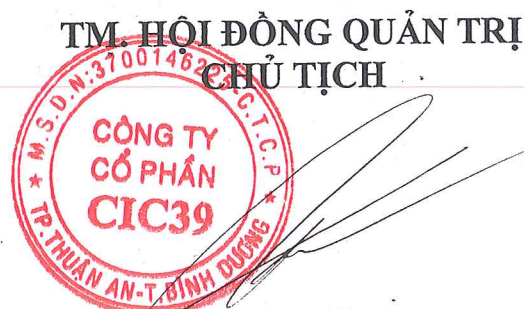 TM. HỘI ĐỒNG QUẢN TRỊ
CHỦ TỊCH
M.S.D.N:3700146225-C.T.C.P
CÔNG TY
CỔ PHẦN
CIC39
TP.THUẬN AN-T.BÌNH DƯƠNG